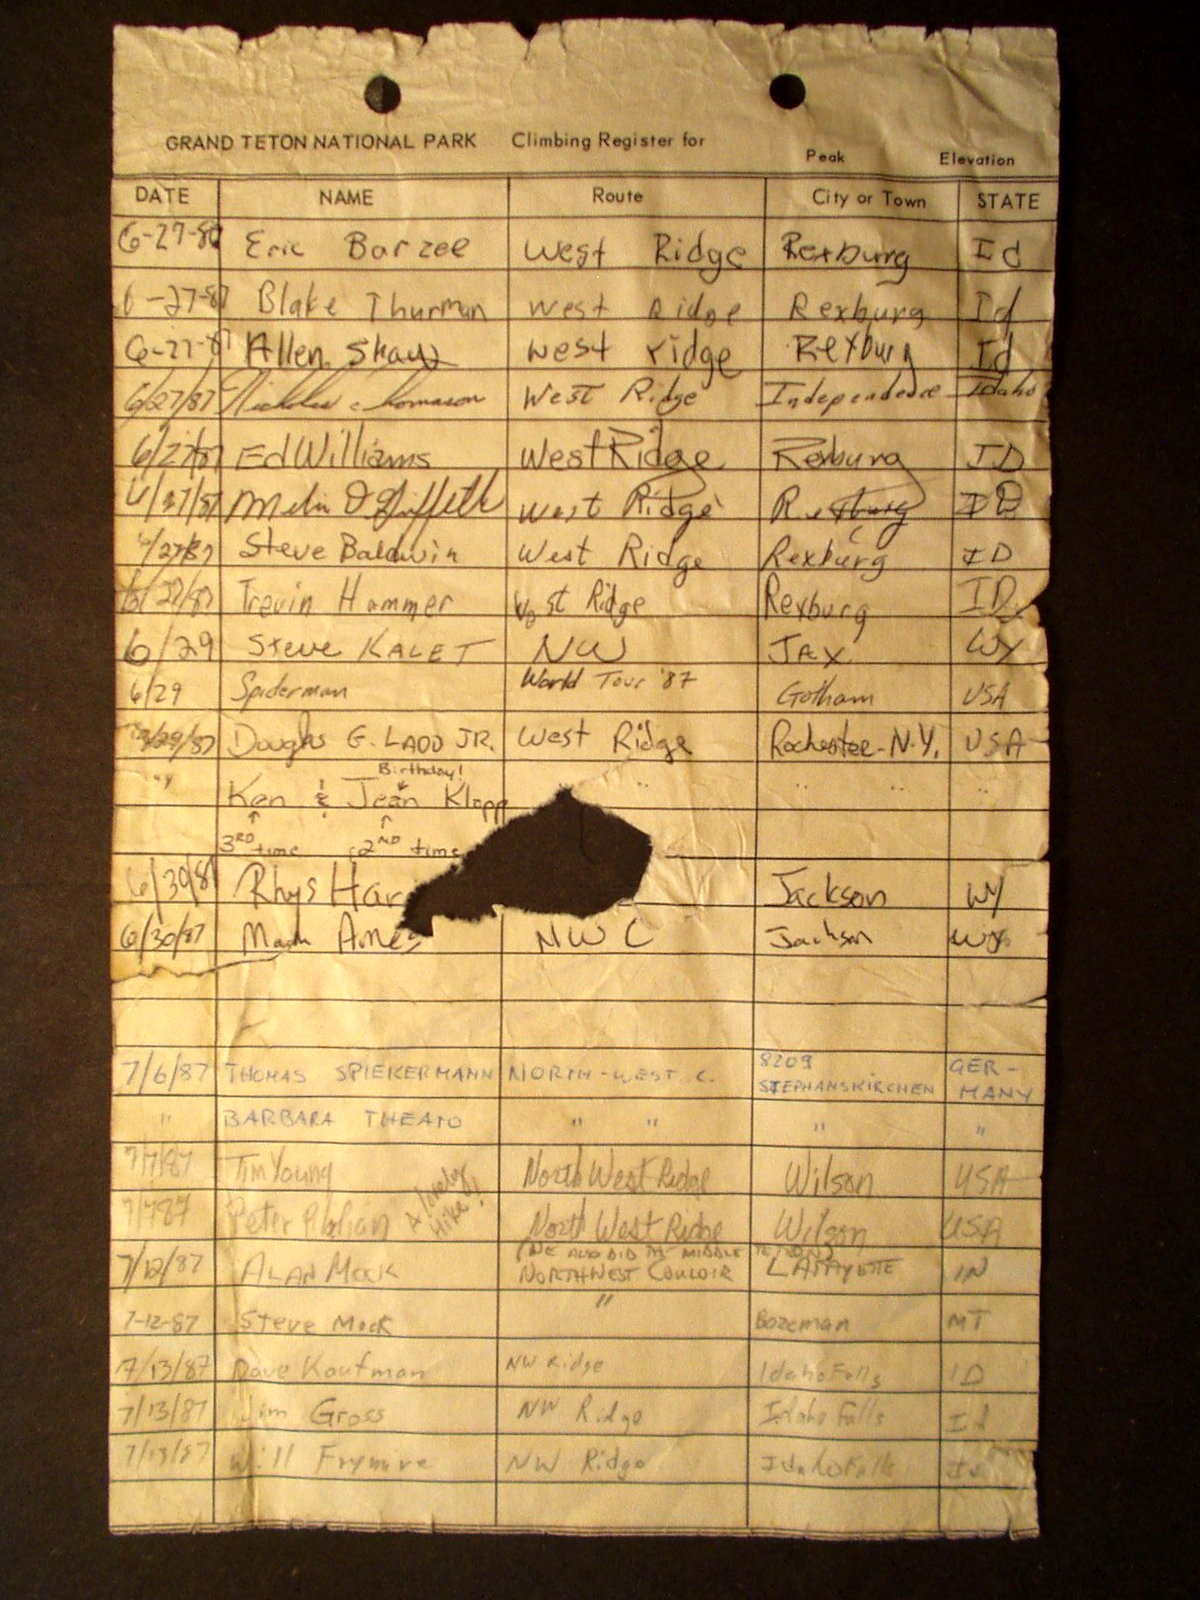 GRAND TETON NATIONAL PARK Climbing Register for Peak Elevation
DATE NAME Route City or Town STATE
6-27-87 Eric Barzee West Ridge Rexburg Id
6-27-87 Blake Thurman West Ridge Rexburg Id
6-27-87 Allen Shaw West ridge Rexburg Id
6/27/87 Nicholas Thomason West Ridge Independence Idaho
6/27/87 Ed Williams West Ridge Rexburg ID
6/27/87 Griffeth West Ridge Rexburg ID
6/27/87 Steve Baldwin West Ridge Rexburg ID
6/27/87 Trevin Hammer West Ridge Rexburg ID
6/29 Steve KALET NW JAX WY
6/29 Spiderman World Tour '87 Gotham USA
6/29/87 Douglas G. LADD JR. West Ridge Rochester-N.Y. USA
Birthday!
" Ken & Jean Klopp " " " "
3RD time 2ND time
6/30/87 Rhys Har Jackson WY
6/30/87 Mark Ames NWC Jackson WY
7/6/87 THOMAS SPIEKERMANN NORTH-WEST C. 8209 STEPHANSKIRCHEN GER-MANY
" BARBARA THEATO " " " "
7/7/87 Tim Young North West Ridge Wilson USA
A lovely hike!
7/7/87 Peter North West Ridge Wilson USA
(WE ALSO DID THE MIDDLE TETON)
7/12/87 ALAN MOCK NORTHWEST COULOIR LAFAYETTE IN
7-12-87 Steve Mock " Bozeman MT
7/13/87 Dave Kaufman NW Ridge Idaho Falls ID
7/13/87 Jim Gross NW Ridge Idaho Falls Id
7/13/87 Will Frymire NW Ridge Idaho Falls Id